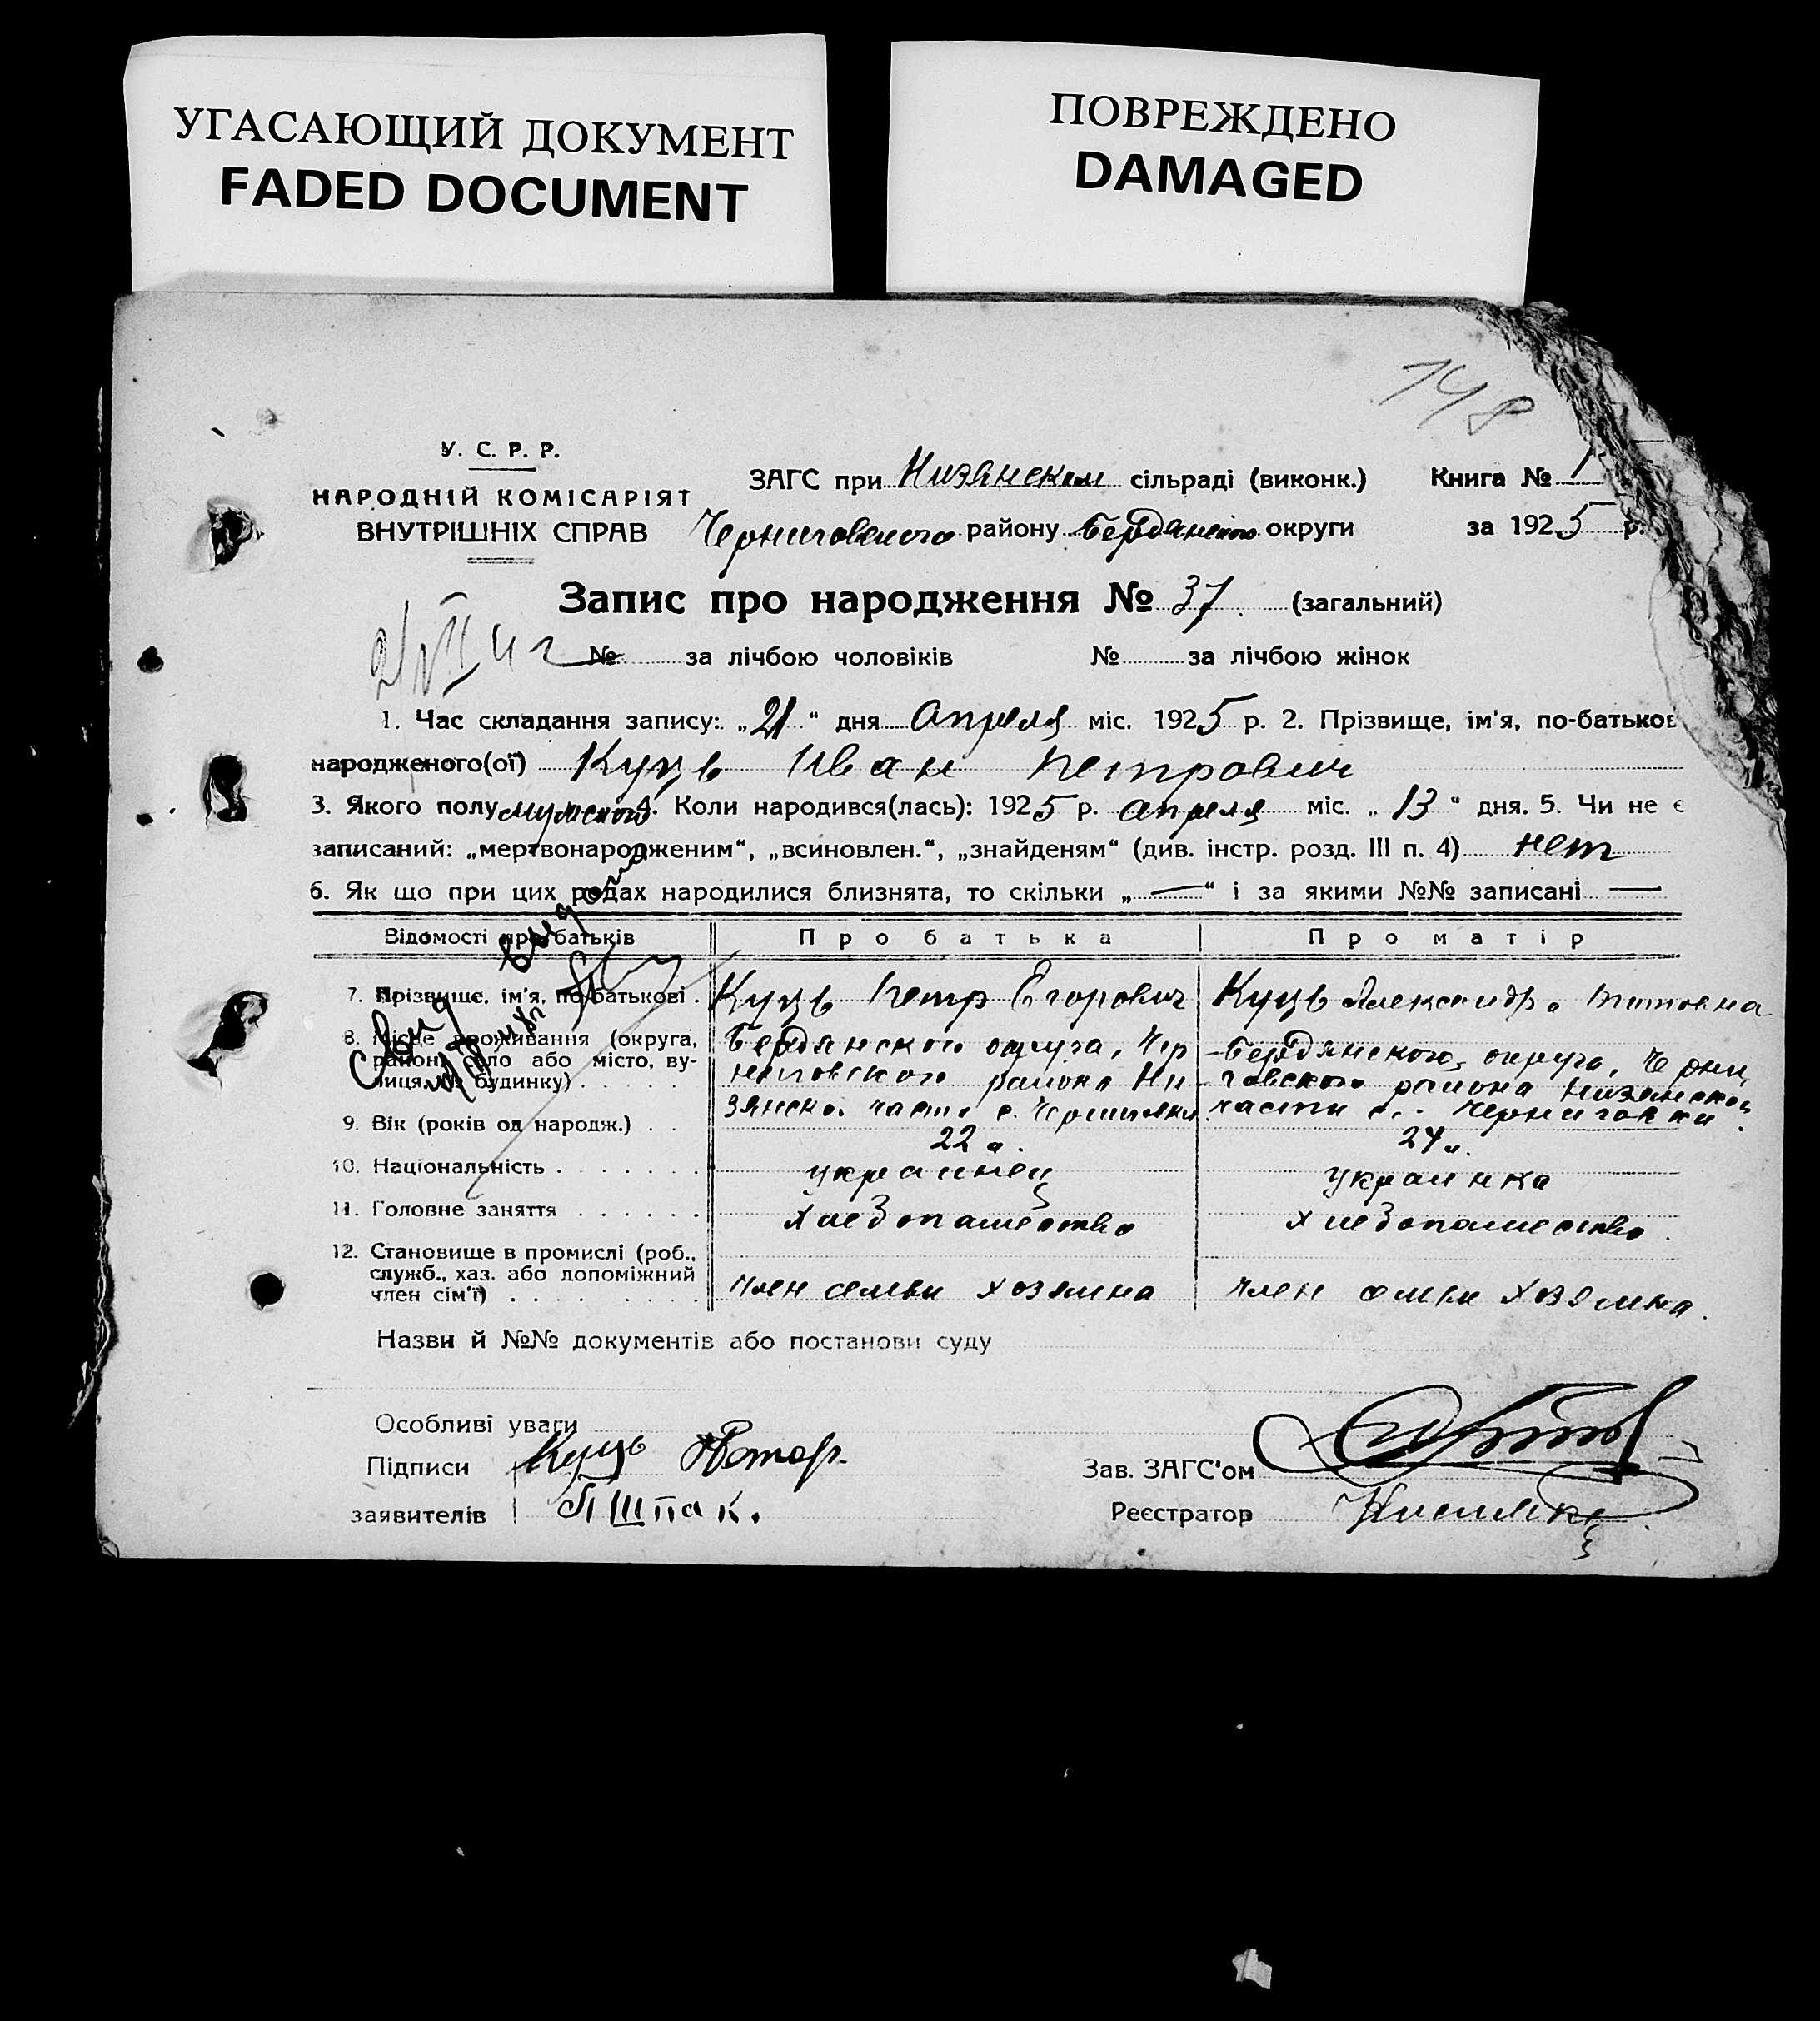 УГАСАЮЩИЙ ДОКУМЕНТ
FADED DOCUMENT
ПОВРЕЖДЕНО
DAMAGED
148
У. С. Р. Р.
НАРОДНІЙ КОМІСАРІЯТ
ВНУТРІШНІХ СПРАВ
ЗАГС при Низянском сільраді (виконк.) Книга № 1
Черниговского району Бердянского округи за 1925 р.
Запис про народження № 37 (загальний)
№ за лічбою чоловіків № за лічбою жінок
1. Час складання запису: „21“ дня Апреля міс. 1925 р. 2. Прізвище, ім'я, по-батьков
народженого(ої) Куць Иван Петрович
3. Якого полу мужского 4. Коли народився(лась): 1925 р. апреля міс. „13“ дня. 5. Чи не є
записаний: „мертвонародженим“, „всиновлен.“, „знайденям“ (див. інстр. розд. III п. 4) нет
6. Як що при цих родах народилися близнята, то скільки „—“ і за якими №№ записані —
Відомості про батьків Про батька Про матір
7. Прізвище, ім'я, по батькові . Куць Петр Егорович Куць Александра Титовна
8. Місце проживання (округа, район, село або місто, вулиця, № будинку) . . . . .
Бердянского округа, Чер
ниговского района Ни
зянской части с. Черниговки
Бердянского округа, Черни
говского района Низянской
части с. Черниговки
9. Вік (років од народж.) . . 22 24
10. Національність . . . . . . . украинец украинка
11. Головне заняття . . . . . . хлебопашество хлебопашество
12. Становище в промислі (роб.,
служб., хаз. або допоміжний
член сім'ї) . . . . . . . член семьи хозяина член семьи хозяина.
Назви й №№ документів або постанови суду
Особливі уваги
Підписи Куць
Зав. ЗАГС'ом
заявителів Шпак.
Реєстратор